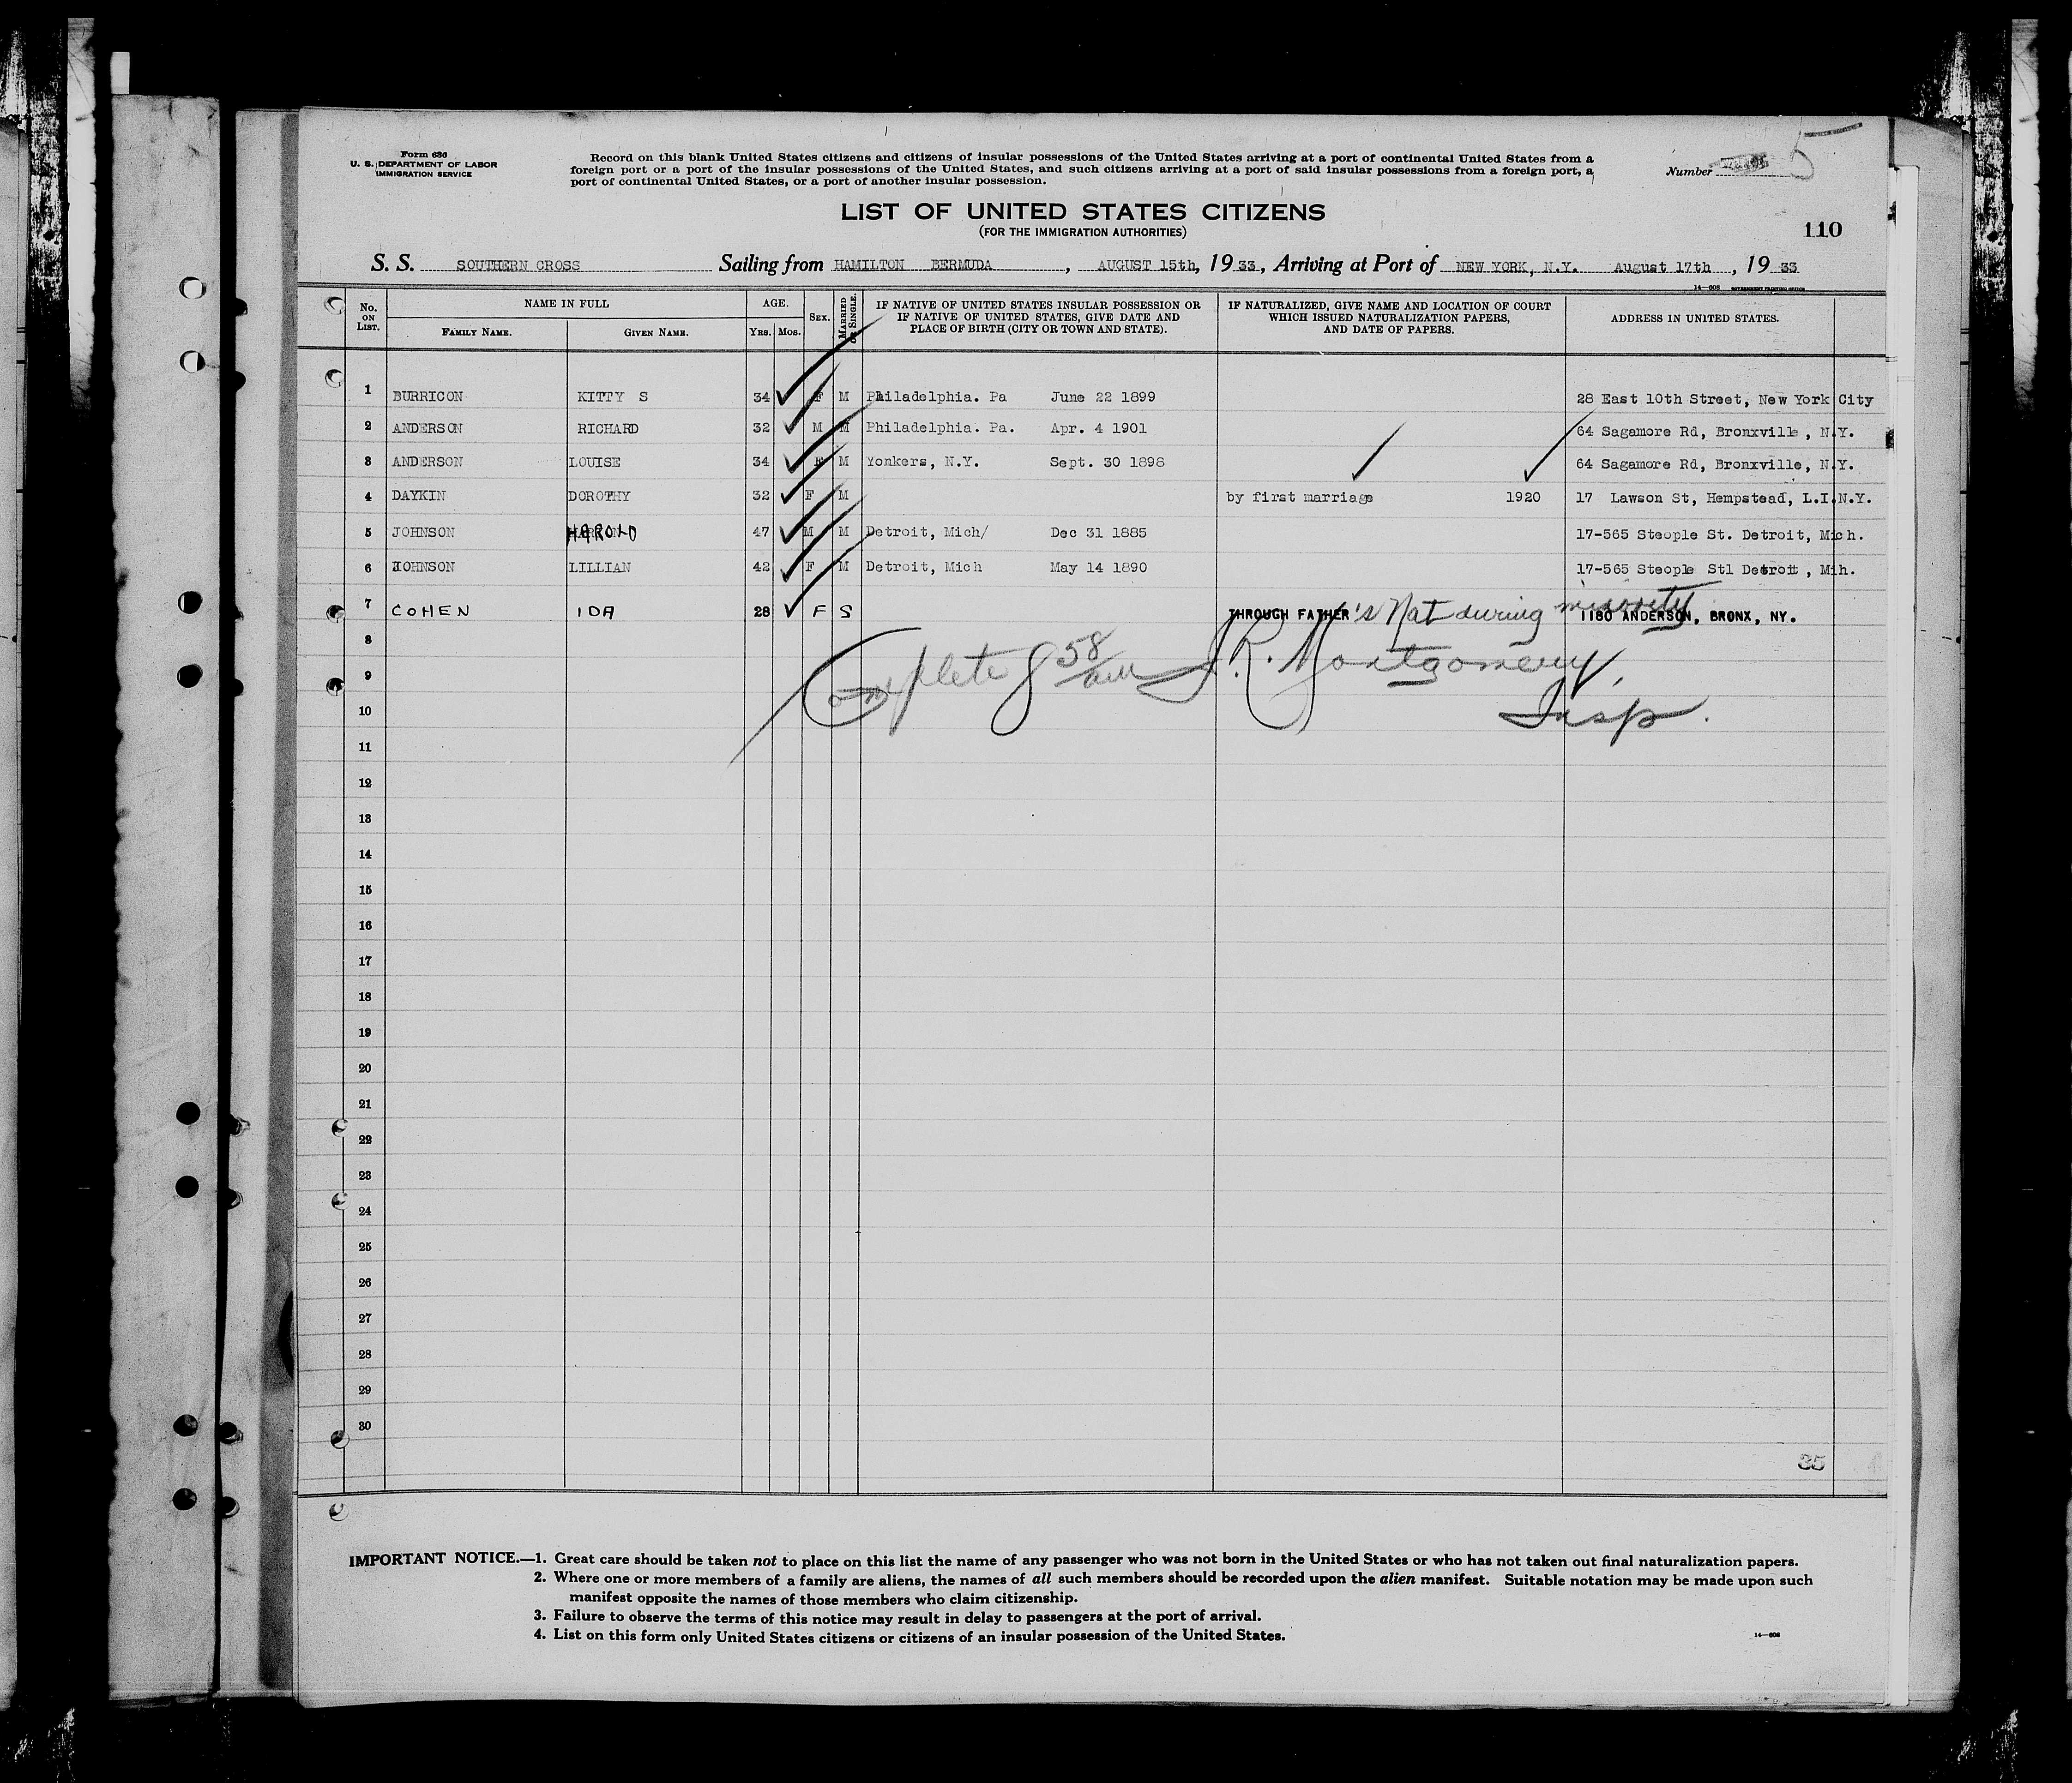 Form 630
U. S. DEPARTMENT OF LABOR
IMMIGRATION SERVICE
Record on this blank United States citizens and citizens of insular possessions of the United States arriving at a port of continental United States from a
foreign port or a port of the insular possessions of the United States, and such citizens arriving at a port of said insular possessions from a foreign port, a
port of continental United States, or a port of another insular possession.
Number 5
LIST OF UNITED STATES CITIZENS
(FOR THE IMMIGRATION AUTHORITIES)
110
S. S. SOUTHERN CROSS Sailing from HAMILTON BERMUDA , AUGUST 15th, 1933, Arriving at Port of NEW YORK, N.Y. August 17th , 1933
14—608 GOVERNMENT PRINTING OFFICE
No. ON LIST. NAME IN FULL FAMILY NAME. GIVEN NAME. AGE. YRS. MOS. SEX. MARRIED OR SINGLE. IF NATIVE OF UNITED STATES INSULAR POSSESSION OR IF NATIVE OF UNITED STATES, GIVE DATE AND PLACE OF BIRTH (CITY OR TOWN AND STATE). IF NATURALIZED, GIVE NAME AND LOCATION OF COURT WHICH ISSUED NATURALIZATION PAPERS, AND DATE OF PAPERS. ADDRESS IN UNITED STATES.
1 BURRICON KITTY S 34 F M Philadelphia. Pa June 22 1899 28 East 10th Street, New York City
2 ANDERSON RICHARD 32 M M Philadelphia. Pa. Apr. 4 1901 64 Sagamore Rd, Bronxville , N.Y.
3 ANDERSON LOUISE 34 F M Yonkers, N.Y. Sept. 30 1898 64 Sagamore Rd, Bronxville, N.Y.
4 DAYKIN DOROTHY 32 F M by first marriage 1920 17 Lawson St, Hempstead, L.I.N.Y.
5 JOHNSON HAROLD 47 M M Detroit, Mich/ Dec 31 1885 17-565 Steople St. Detroit, Mich.
6 JOHNSON LILLIAN 42 F M Detroit, Mich May 14 1890 17-565 Steople Stl Detroit , Mih.
7 COHEN IDA 28 F S THROUGH FATHER's Nat during minority 1180 ANDERSON, BRONX, NY.
8
9 Complete 8 58/am J.R. Montgomery,
10 Insp.
11
12
13
14
15
16
17
18
19
20
21
22
23
24
25
26
27
28
29
30
35
IMPORTANT NOTICE.—1. Great care should be taken not to place on this list the name of any passenger who was not born in the United States or who has not taken out final naturalization papers.
2. Where one or more members of a family are aliens, the names of all such members should be recorded upon the alien manifest. Suitable notation may be made upon such
manifest opposite the names of those members who claim citizenship.
3. Failure to observe the terms of this notice may result in delay to passengers at the port of arrival.
4. List on this form only United States citizens or citizens of an insular possession of the United States.
14—608